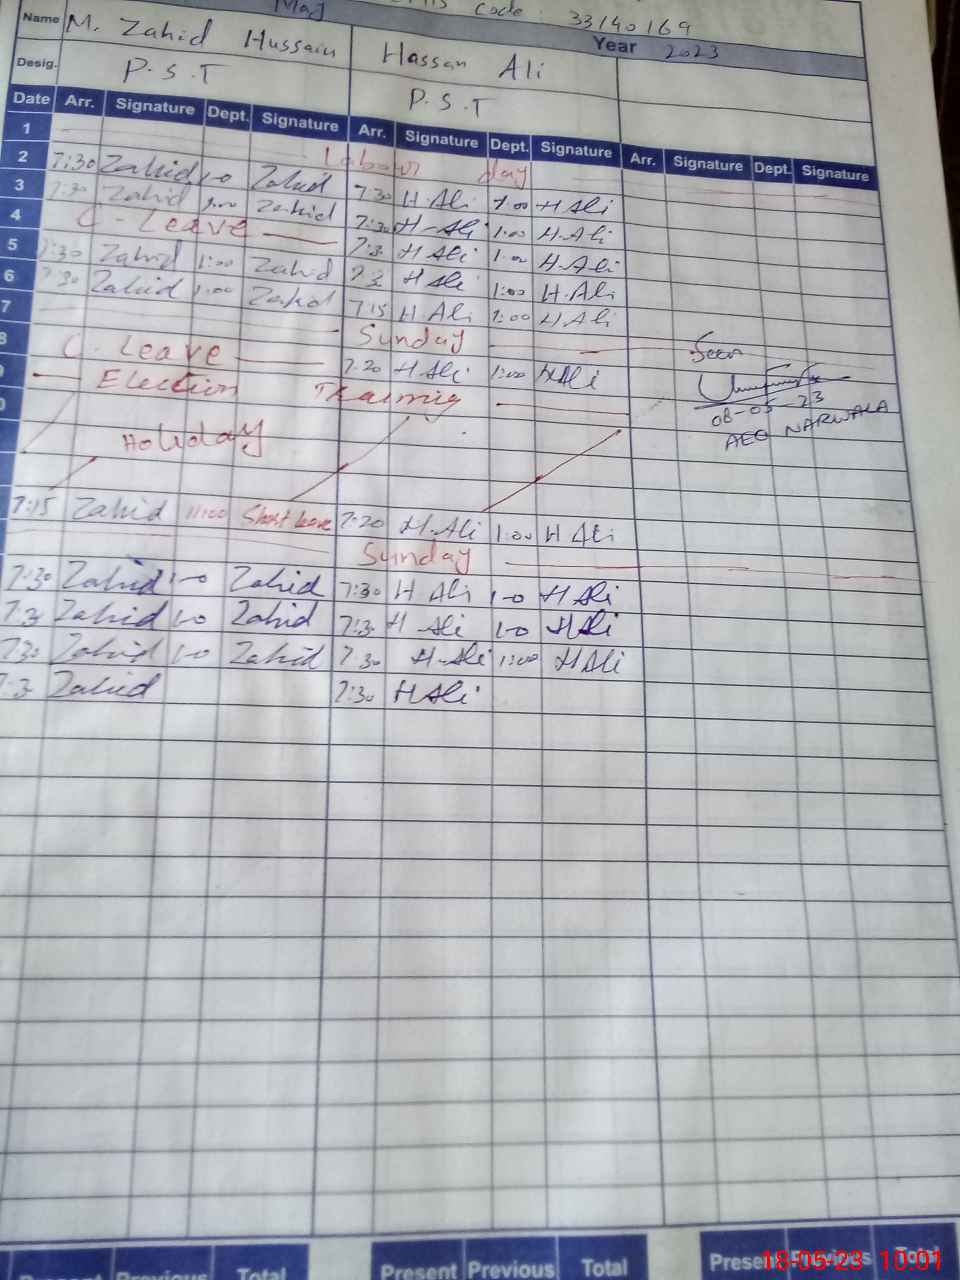 Code : 33140169
Year 2023
Name M. Zahid Hussain Hassan Ali
Desig. P.S.T P.S.T
Date Arr. Signature Dept. Signature Arr. Signature Dept. Signature Arr. Signature Dept. Signature
1 Labour day
2 7:30 Zahid 1-0 Zahid 7:30 H.Ali 1:00 H Ali
3 7:30 Zahid 1:00 Zahid 7:30 H-Ali 1:00 H.Ali
4 C-Leave 7:3 H Ali 1:00 H.Ali
5 7:30 Zahid 1:00 Zahid 7:3 H Ali 1:00 H.Ali
6 7:30 Zahid 1:00 Zahid 7:15 H.Ali 1:00 H Ali
7 Sunday
8 C-Leave 7:20 H Ali 1:00 H Ali
Seen
08-05-23
AEO NARWALA
Election Training
Holiday
7:15 Zahid 11:00 Short leave 7:20 H.Ali 1:00 H Ali
Sunday
7:30 Zahid 1-0 Zahid 7:30 H.Ali 1-0 H Ali
7:3 Zahid 1-0 Zahid 7:3 H Ali 1-0 H Ali
7:30 Zahid 1-0 Zahid 7:30 H-Ali 1:00 H Ali
7:3 Zahid 7:30 H Ali
Present Previous Total Present Previous Total Present Previous Total
18-05-23 10:01